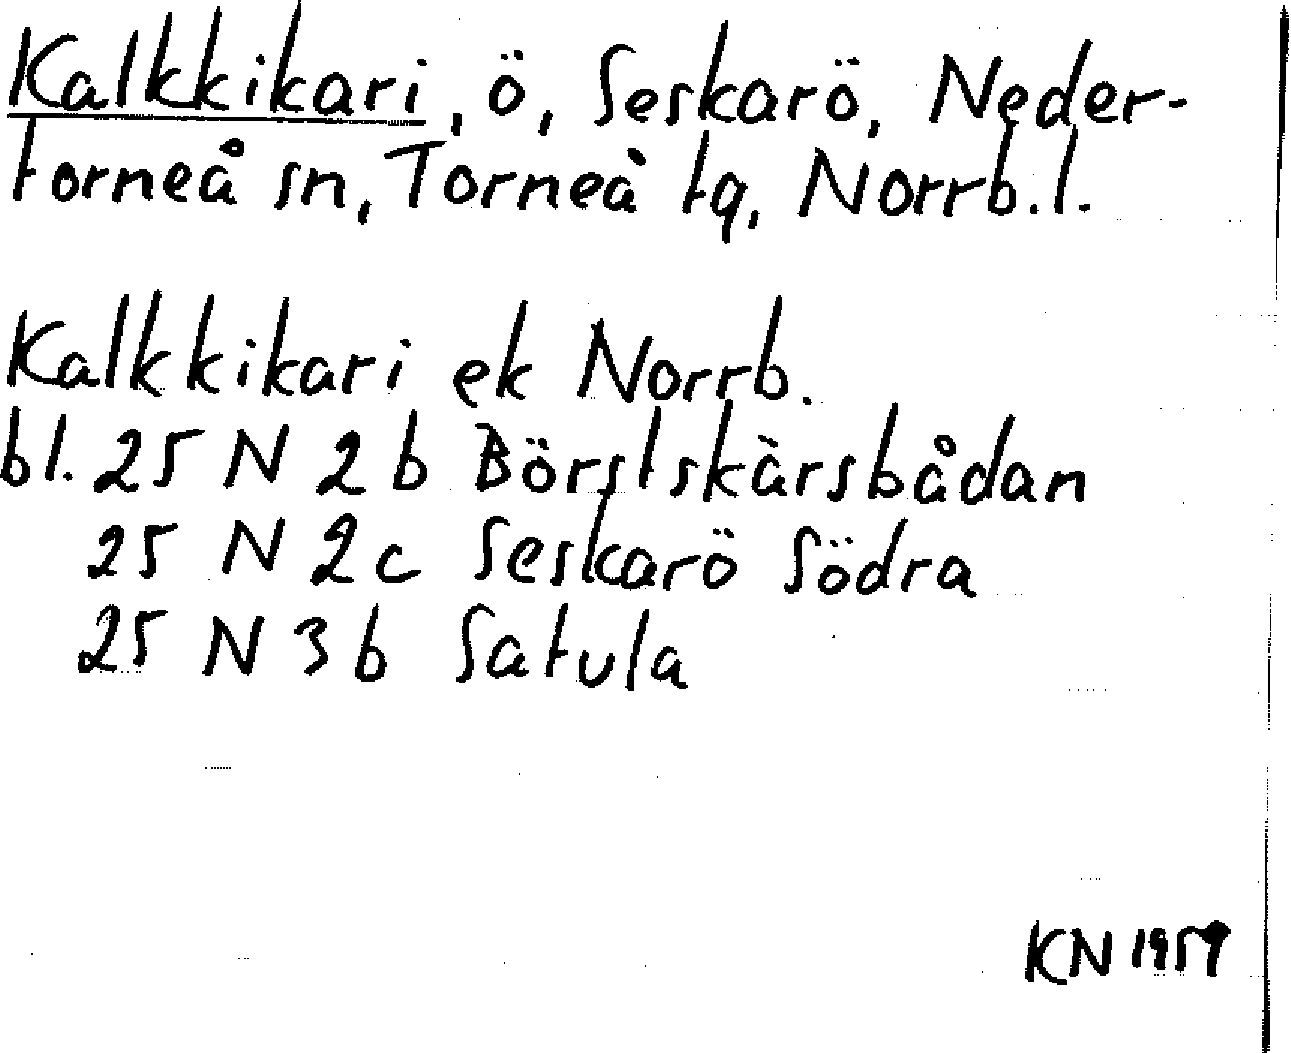 Kalkkikari, ö, Seskarö, Neder-
torneå sn, Torneå tg, Norrb.l.
Kalkkikari ek Norrb.
bl. 25 N 2b Börstskärsbådan
25 N 2c Seskarö Södra
25 N 3b Satula
KN 1959